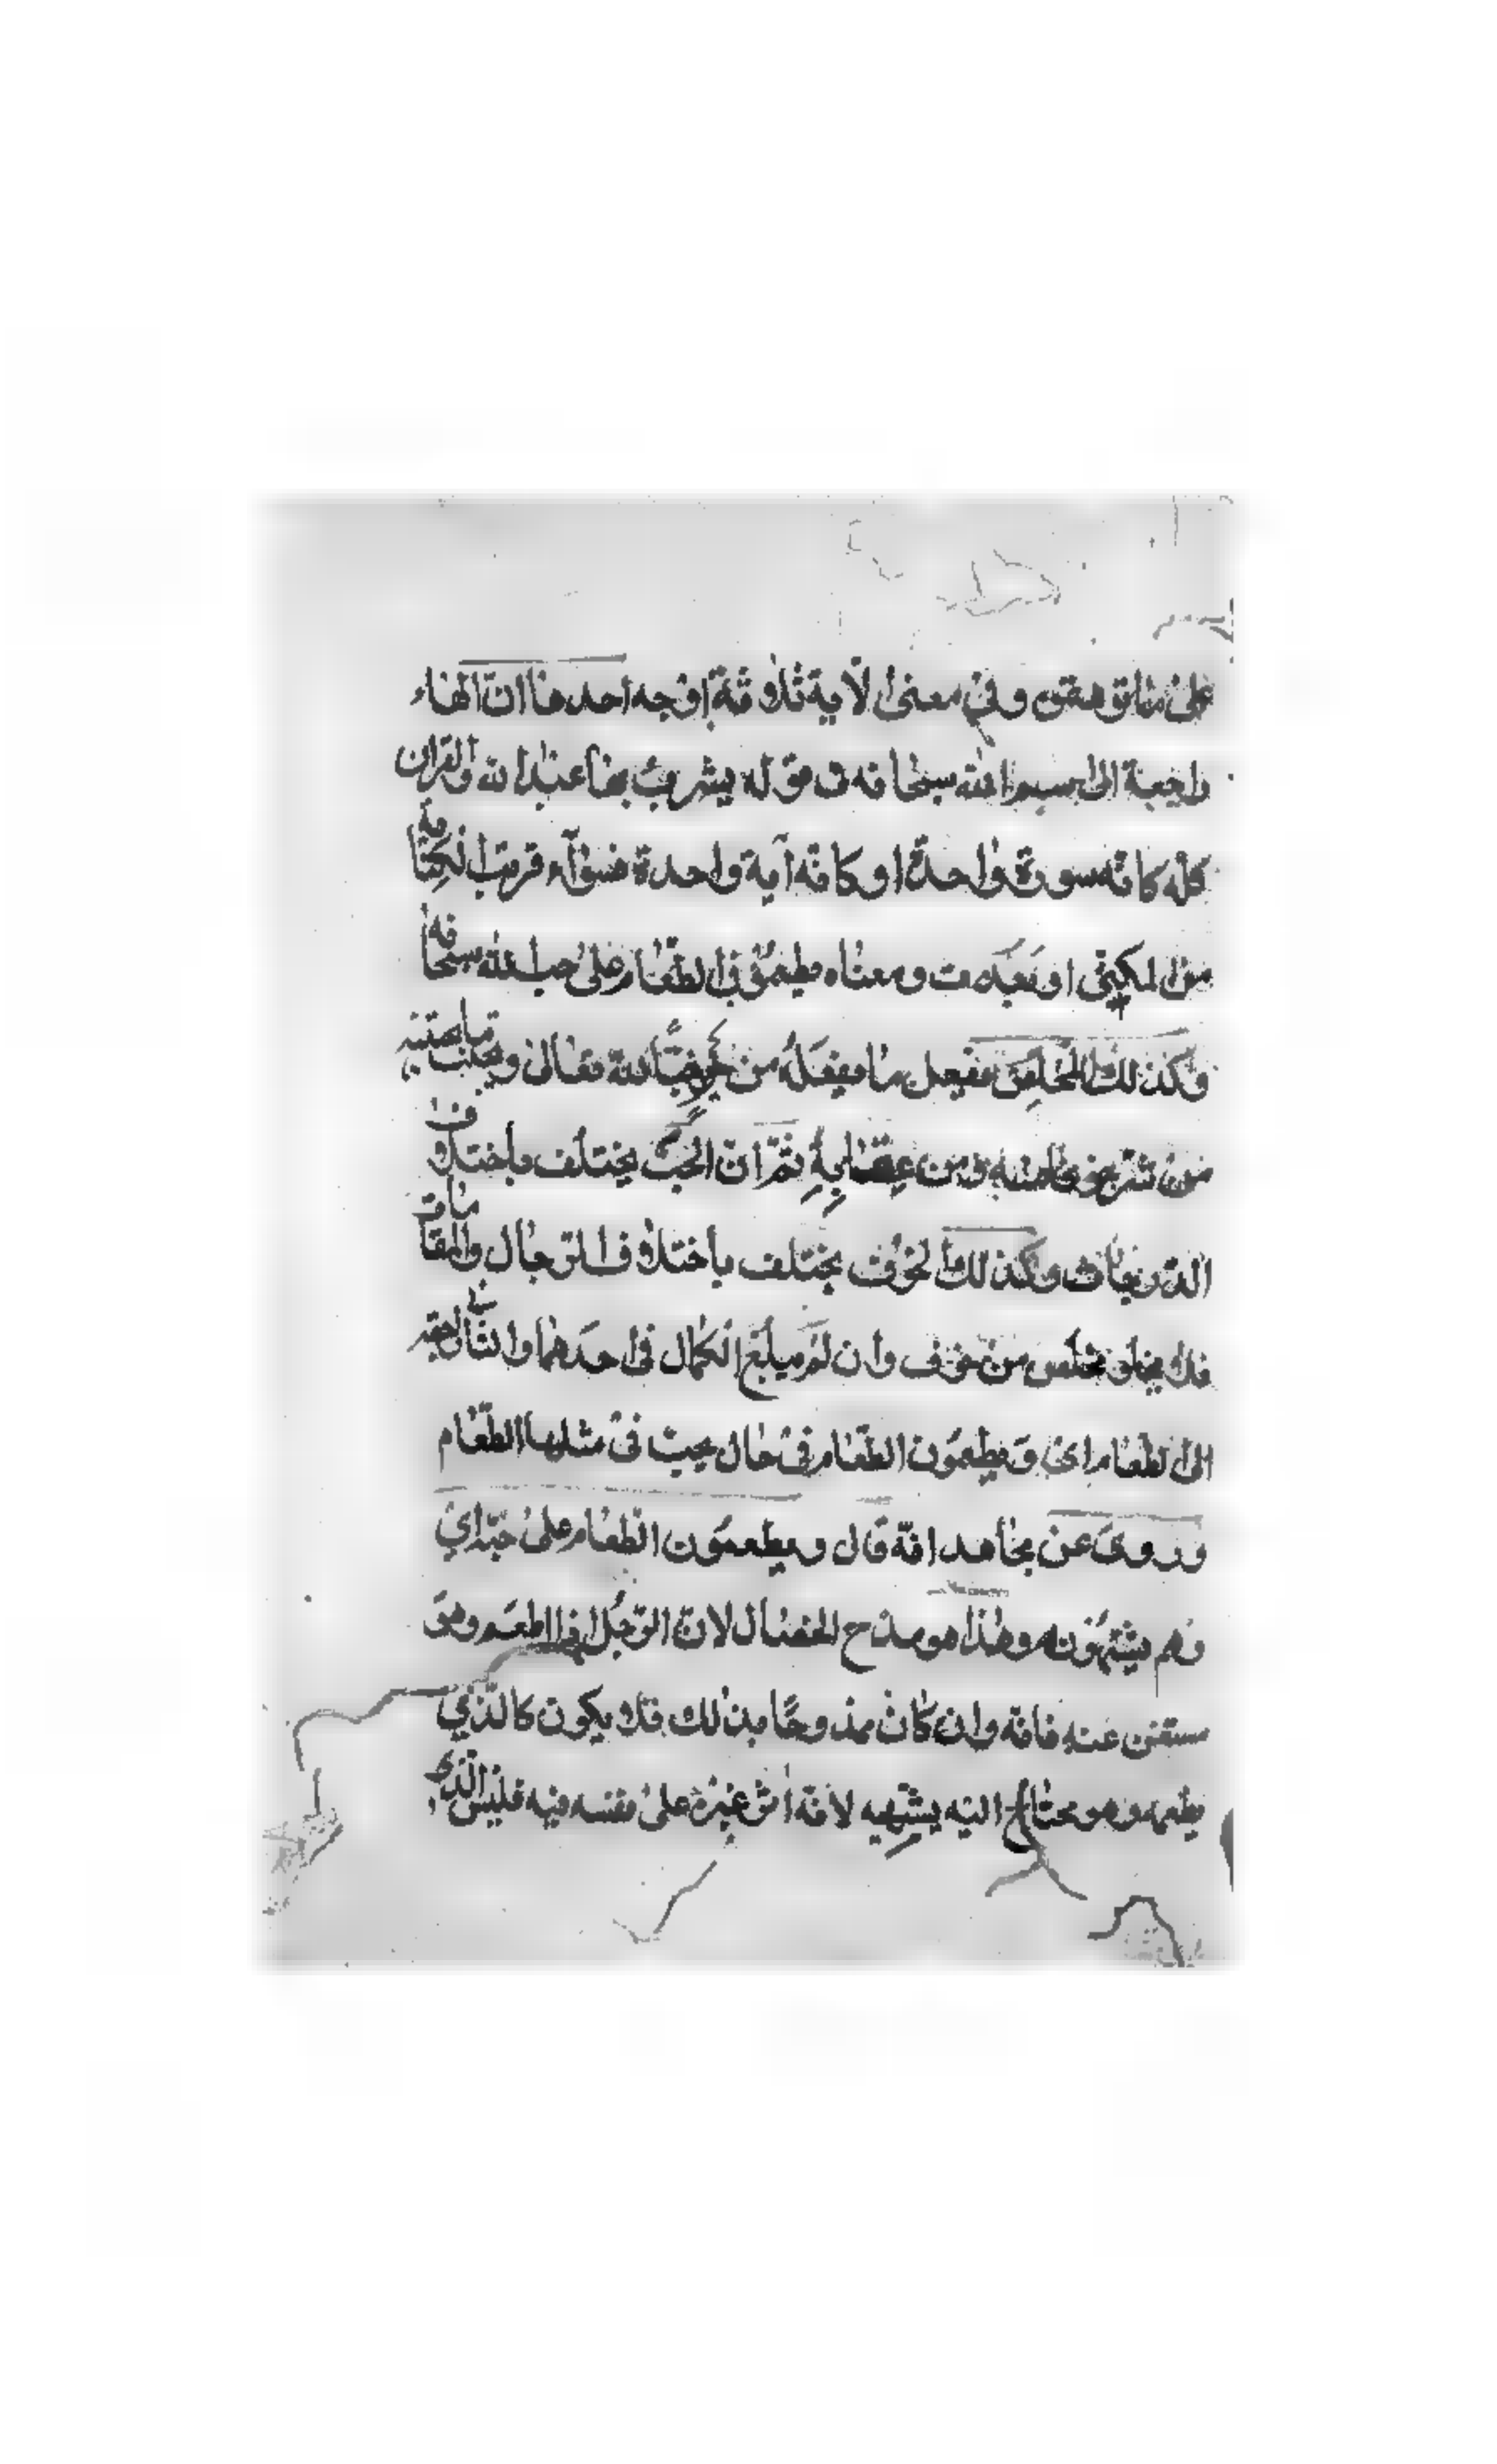 على ما توهمتوه وفي معنى الآية ثلاثة اوجه احدها ان الهاء
راجعة الى اسم الله سبحانه في قوله يشرب بها عباد الله والقرآن
كله كانه سورة واحدة او كانه آية واحدة فسواء قربت الكناية
من المكني او بعدت ومعناه يطعمون الطعام على حب الله سبحانه
وكذلك المخلص يفعل ما يفعله من خير حبًّا لله تعالى ويجتنب ما يجتنبه
من شر خوفا منه ومن عقابه ثم ان الحب يختلف باختلاف
الدرجات وكذلك الخوف يختلف باختلاف الرجال والمقامات
فلا يخلو مخلص من خوف وان لم يبلغ الكمال في احدهما والثاني
الى الطعام اي ويطعمون الطعام في حال يحب في مثلها الطعام
وروى عن مجاهد انه قال ويطعمون الطعام على حبه اي
وهم يشتهونه وهذا هو مدح الخصال لان الرجل اذا اطعم وهو
مستغن عنه فانه وان كان ممدوحًا بذلك فلا يكون كالذي
يطعمه وهو محتاج اليه يشتهيه لانه اثر غيره على نفسه فيه فليس الذي